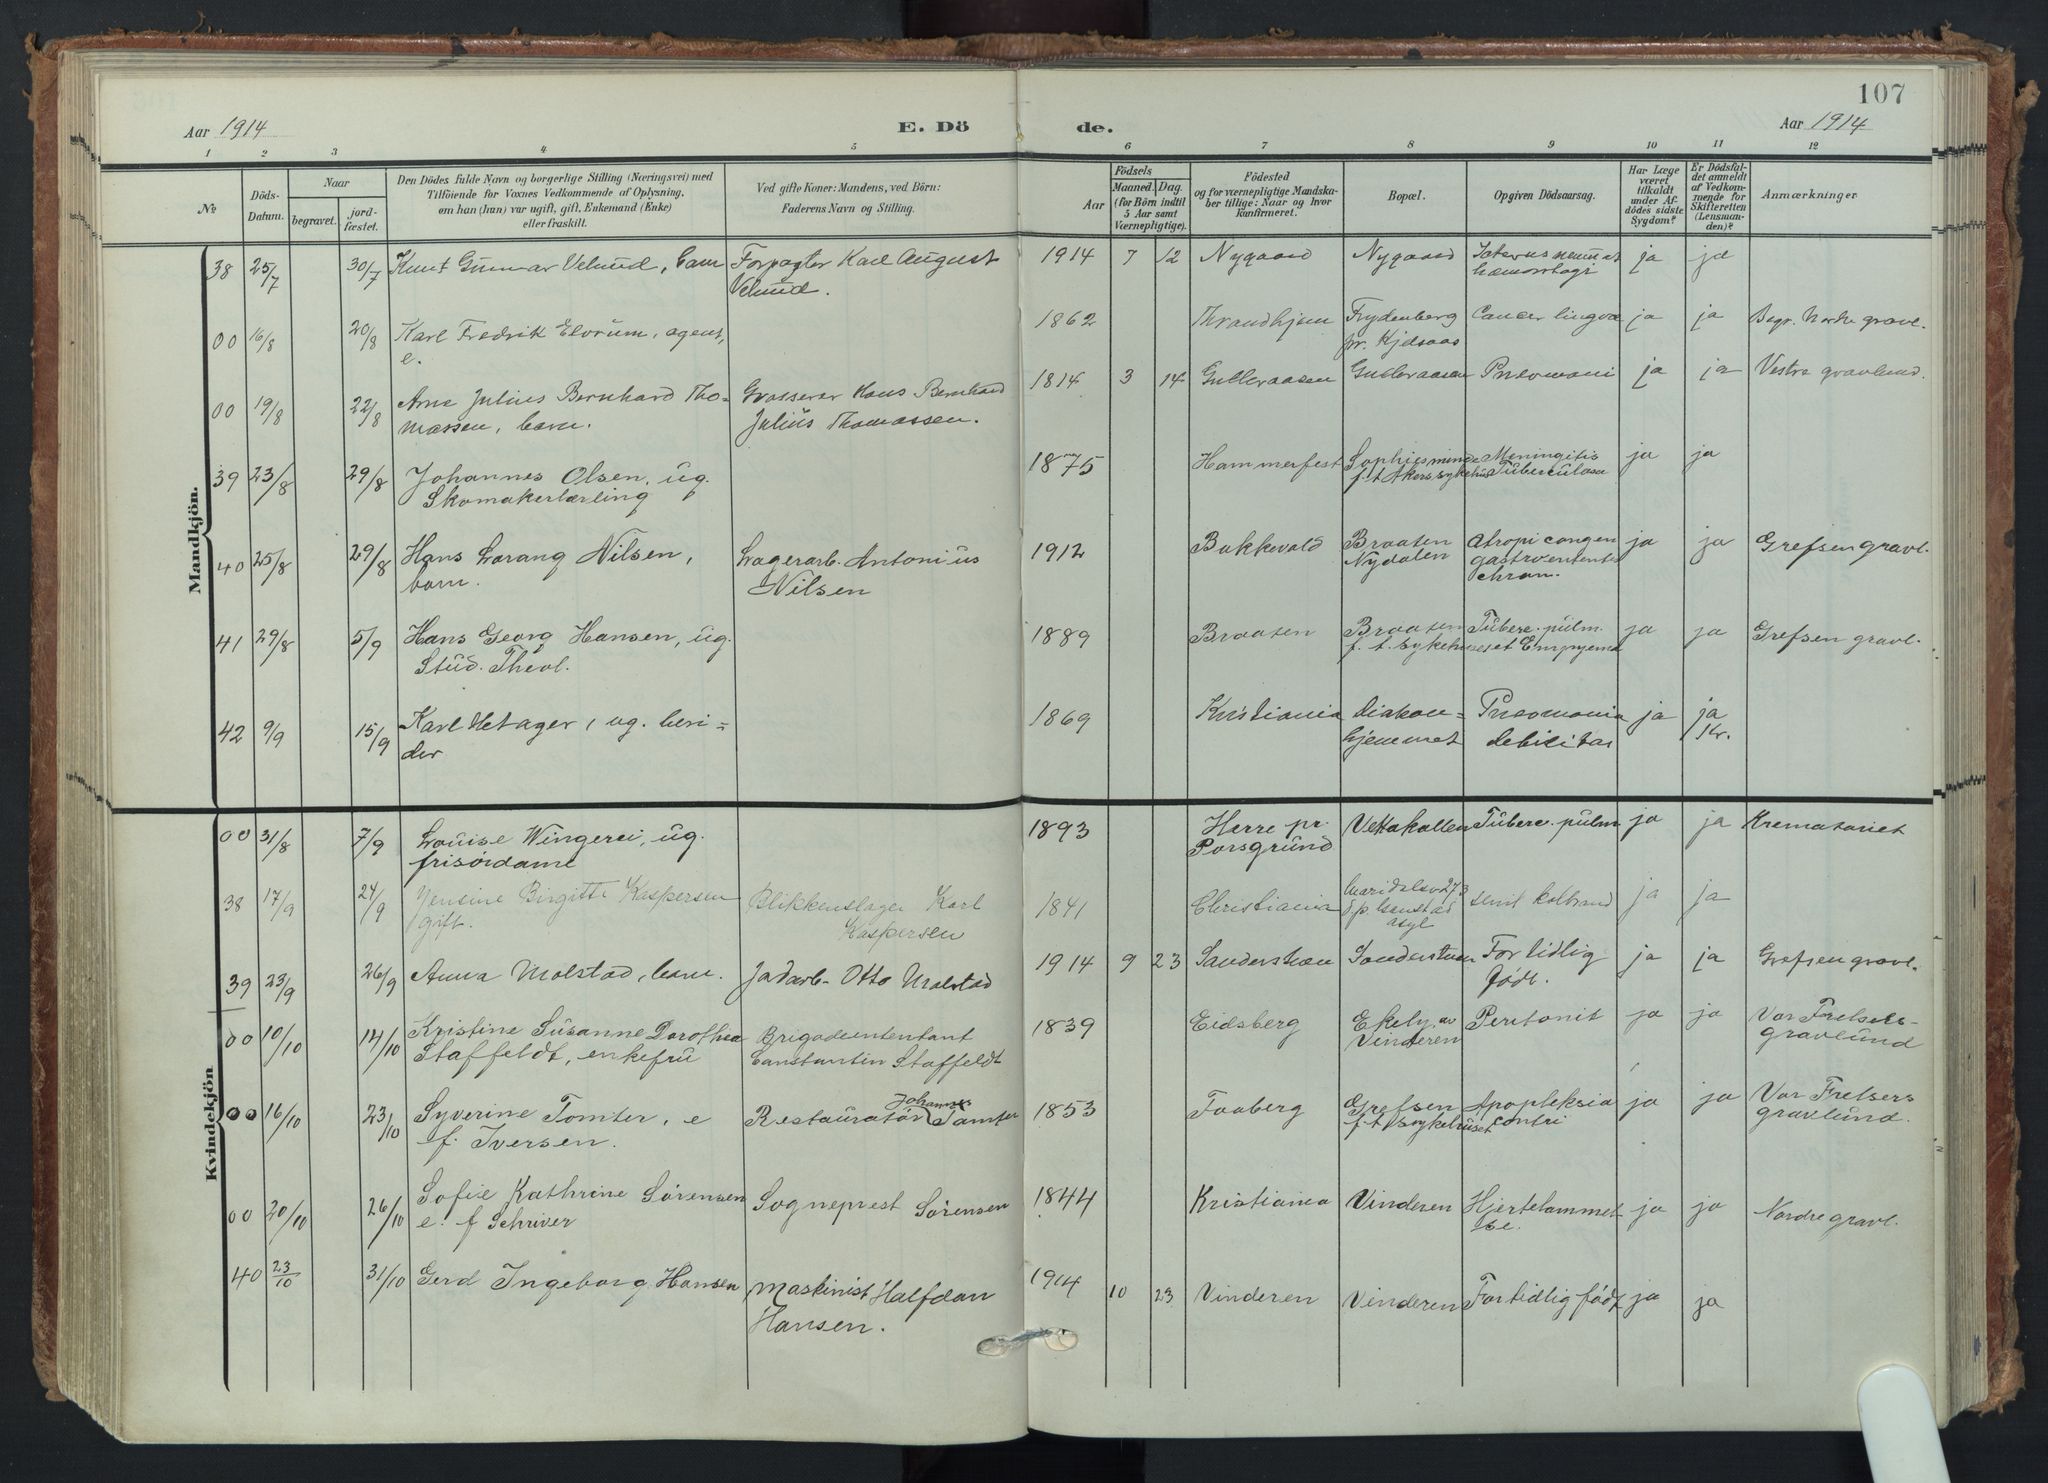 107
Aar 1914
E. Dö
de.
Aar 1914
1 2 3 4 5 6 7 8 9 10 11 12
No.
Döds-
Datum.
Naar
begravet.
jord-
fæstet.
Den Dödes fulde Navn og borgerlige Stilling (Næringsvei) med
Tilföiende for Voxnes Vedkommende af Oplysning,
om han (hun) var ugift, gift, Enkemand (Enke)
eller fraskilt.
Ved gifte Koner: Mandens, ved Börn:
Faderens Navn og Stilling.
Aar
Födsels
Maaned. Dag.
(for Börn indtil
5 Aar samt
Værnepligtige).
Födested
og for værnepligtige Mandska-
ber tillige: Naar og hvor
konfirmeret.
Bopæl.
Opgiven Dödsaarsag.
Har Læge
været
tilkaldt
under Af-
dödes sidste
Sygdom?
Er Dödsfal-
det anmeldt
af Vedkom-
mende for
Skifteretten
(Lensman-
den)?
Anmærkninger
Mandkjön.
38 25/7 30/7 Knut Gunnar Velund, barn Forpagter Karl August 1914 7 12 Nygaard Nygaard ja ja
Velund.
00 16/8 20/8 Karl Fredrik Elvrum, agent, 1862 Thrandhjem Frydenberg Cancer lingvæ ja ja Begr. Nordre gravl.
e. pr. Kjelsaas
00 19/8 22/8 Arne Julius Bernhard Tho- Grosserer Hans Bernhard 1814 3 14 Gulleraasen Gulleraasen Pneomoni ja ja Vestre gravlund.
massen, barn. Julius Thomassen.
39 23/8 29/8 Johannes Olsen, ug. 1875 Hammerfest Sophiesminde Meningitis ja ja
Skomakerlærling f. t. Akers sykehus Tuberculosa
40 25/8 29/8 Hans Lorang Nilsen, Lagerarb. Antonius 1912 Bakkevold Braaten Atropi congen ja ja Grefsen gravl.
barn. Nilsen Nydalen
chron.
41 29/8 5/9 Hans Georg Hansen, ug. 1889 Braaten Braaten Tuberc. pulm. ja ja Grefsen gravl.
Stud. Theol. f. t. sykehuset Empyema
42 9/9 15/9 Karl Hetager, ug. beri- 1869 Kristiania Diakon- Pneomonia ja ja
der hjemmet debilitas Kr.
Kvindekjön
00 31/8 7/9 Louise Wingerei, ug. 1893 Herre pr. Vettakollen Tuberc. pulm ja ja Krematoriet
frisørdame Porsgrund
38 17/9 24/9 Jensine Birgitte Kaspersen Blikkenslager Karl 1841 Christiania Maridalsv 273 senil kolbrand ja ja
gift. Kaspersen
asyl
39 23/9 26/9 Anna Molstad, barn. Jadarb. Otto Molstad 1914 9 23 Sanderstuen Sanderstuen For tidlig ja ja Grefsen gravl.
født.
00 10/10 14/10 Kristine Susanne Dorothea Brigadeintentant 1839 Eidsberg Ekely av Peritonit ja ja Vor Frelsers-
Staffeldt, enkefru Constantin Staffeldt Vinderen gravlund
00 16/10 23/10 Syverine Tomter, e Restauratør Johannes Tomter 1853 Faaberg Grefsen Apopleksia ja ja Vor Frelsers
f. Iversen. f. t. sykehuset gravlund.
00 20/10 26/10 Sofie Kathrine Sørensen Sogneprest Sørensen 1844 Kristiania Vinderen Hjertelammet ja ja Nordre gravl.
e. f Schriver se.
40 23/10 31/10 Gerd Ingeborg Hansen Maskinist Halfdan 1914 10 23 Vinderen Vinderen For tidlig født ja ja
Hansen.